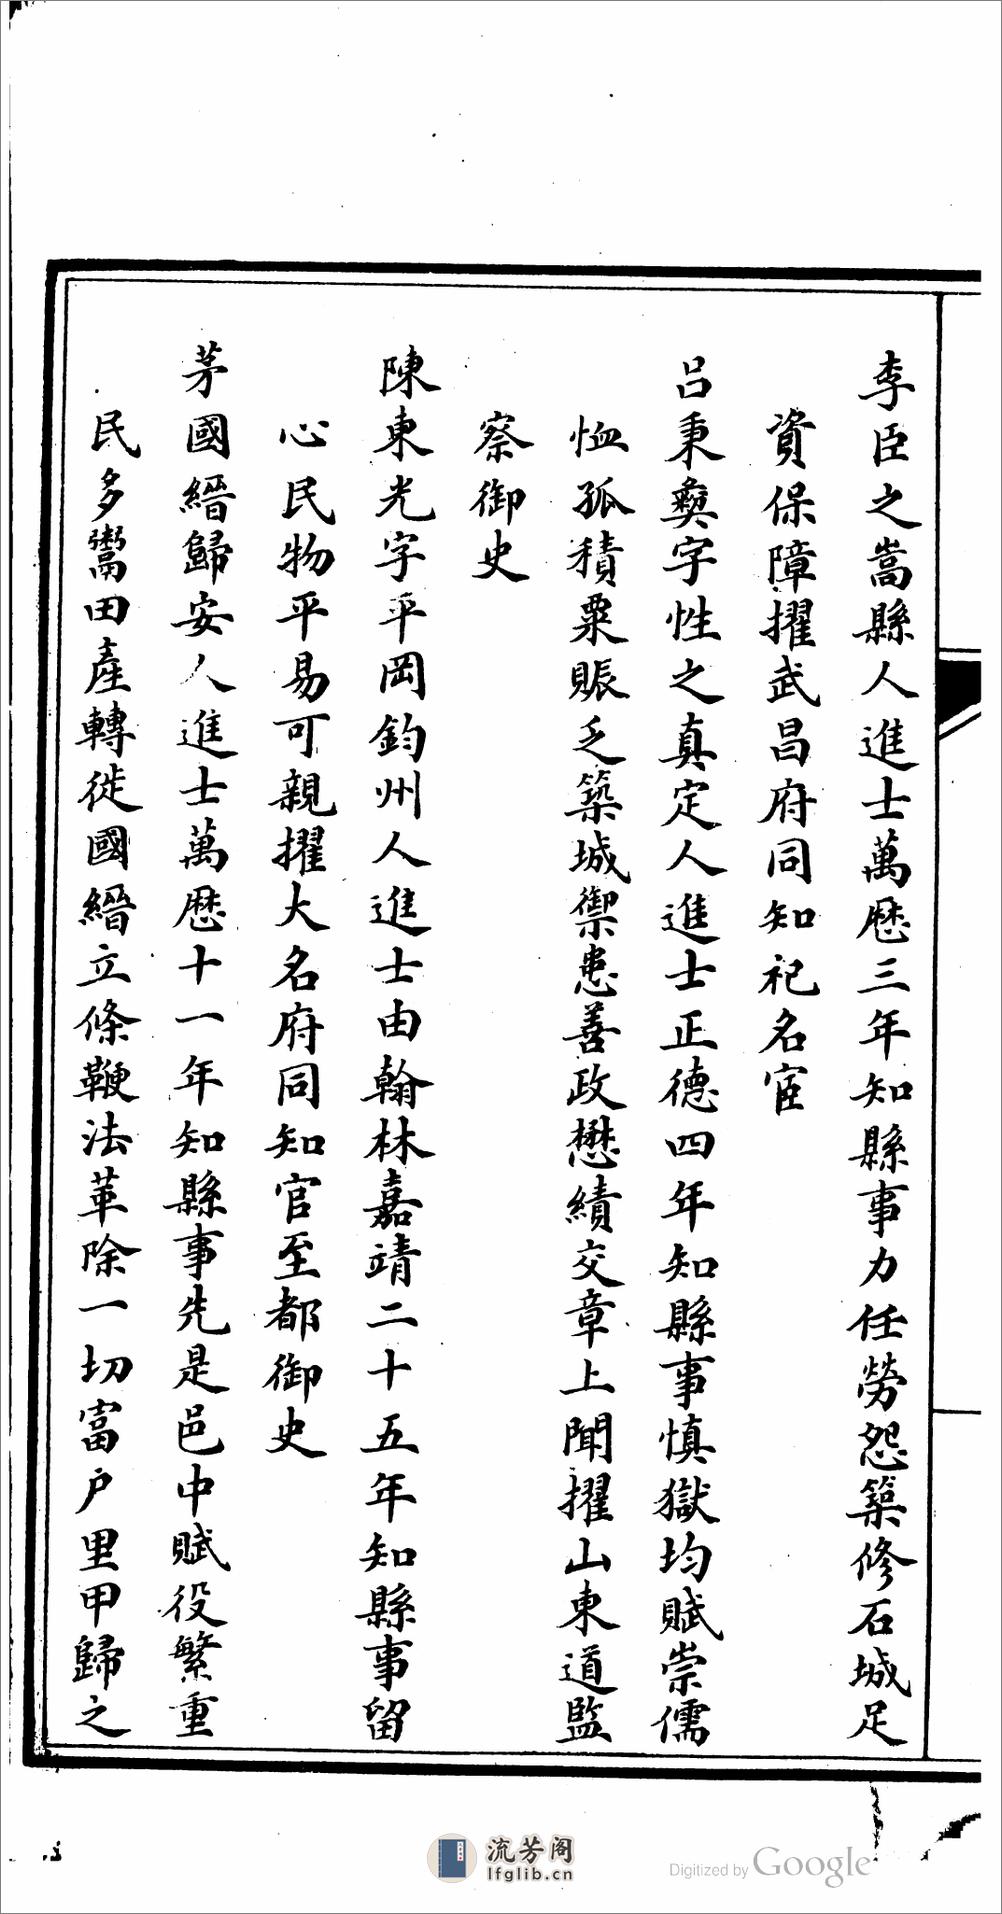 李臣之嵩縣人進士萬厯三年知縣事力任勞怨築修石城足
資保障擢武昌府同知祀名宦
吕秉彜字性之真定人進士正德四年知縣事慎獄均賦崇儒
恤孤積粟賑乏築城禦患善政懋績交章上聞擢山東道監
察御史
陳東光字平岡鈞州人進士由翰林嘉靖二十五年知縣事留
心民物平易可親擢大名府同知官至都御史
茅國縉歸安人進士萬厯十一年知縣事先是邑中賦役繁重
民多鬻田產轉徙國縉立條鞭法革除一切富户里甲歸之
流芳阁
lfglib.cn
Digitized by Google